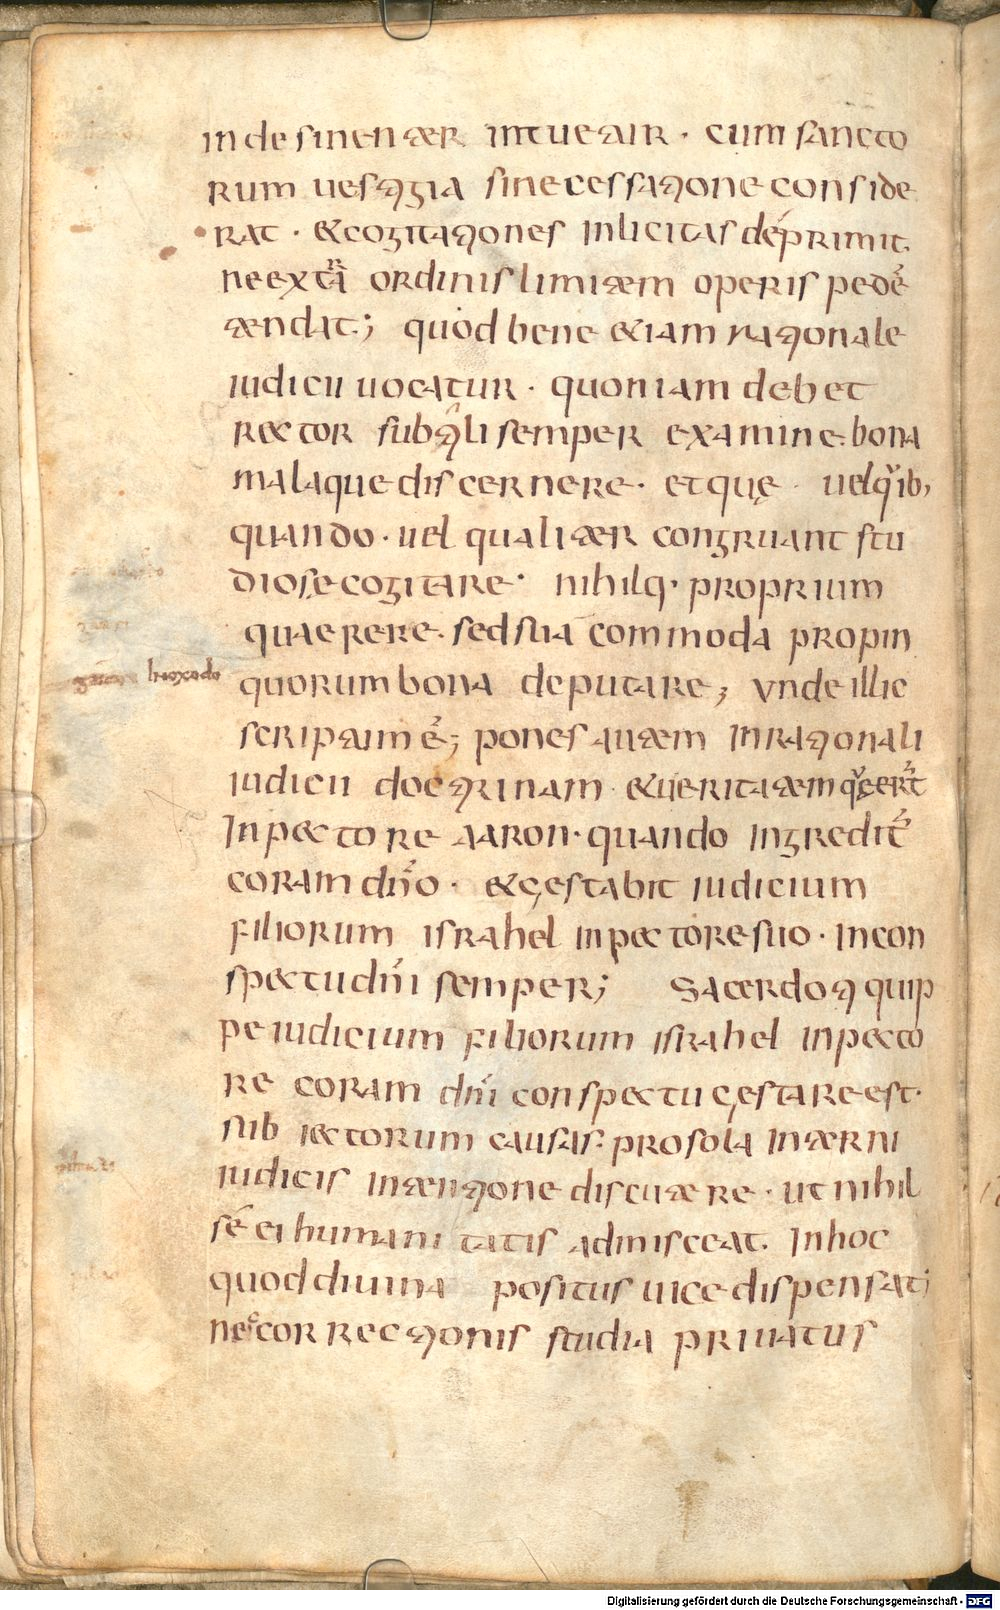 indesinenter intueatur · cum sancto
rum uestigia sine cessatione conside
rat · &cogitationes inlicitas deprimit
ne extra ordinis limitem operis pedē
tendat; quod bene &iam rationale
iudicii uocatur · quoniam debet
rector subtili semper examine bona
malaque discernere · et quę uel quib;
quando · uel qualiter congruant stu
diosę cogitare · nihilq· proprium
quaerere · sed sua commoda propin
quorum bona deputare; unde illic
scriptum ē; pones autem in rationali
iudicii doctrinam &ueritatem
in pectore aaron · quando ingredit̄
coram dño · &gestabit iudicium
filiorum israhel in pectore suo · in con
spectu dñi semper; Sacerdoti quip
pe iudicium filiorum israhel in pecto
re coram dñi conspectu gestare est ·
subiectorum causas · pro sola interni
iudicis intentione discutere · ut nihil
sē ei humanitatis admisceat · In hoc
quod diuina positus uice dispensat;
nec correctionis studia priuatus
in exodo